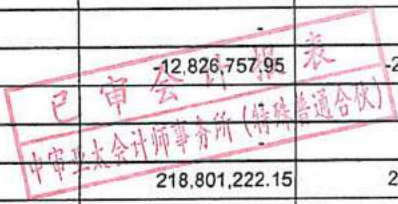 -
-12,826,757.95 -2
已审会计报表
-
中审亚太会计师事务所(特殊普通合伙)
-
218,801,222.15 2